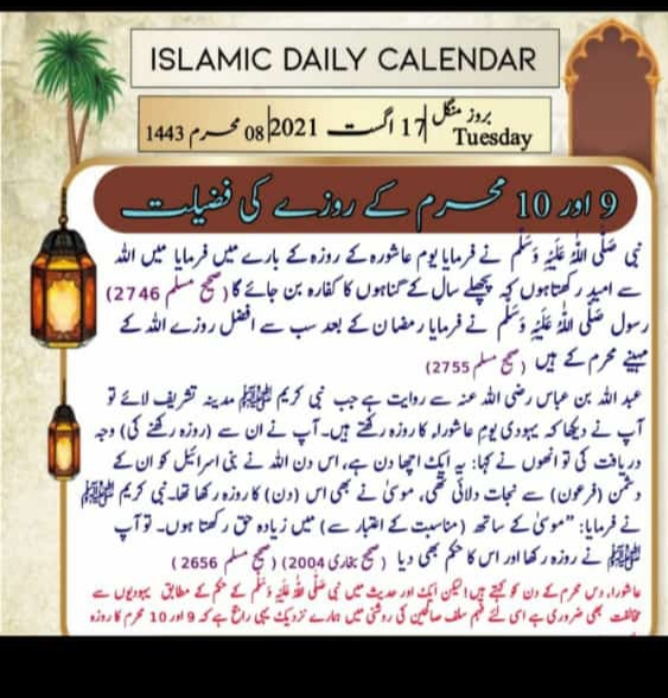 ISLAMIC DAILY CALENDAR
بروز منگل 17 اگست 2021 08 محرم 1443
Tuesday
9 اور 10 محرم کے روزے کی فضیلت
نبی صَلَّی اللّٰہُ عَلَیْہِ وَسَلَّم نے فرمایا یوم عاشورہ کے روزہ کے بارے میں فرمایا میں اللہ
سے امید رکھتا ہوں کہ پچھلے سال کے گناہوں کا کفارہ بن جائے گا (صحیح مسلم 2746)
رسول صَلَّی اللّٰہُ عَلَیْہِ وَسَلَّم نے فرمایا رمضان کے بعد سب سے افضل روزے اللہ کے
مہینے محرم کے ہیں (صحیح مسلم 2755)
عبد اللہ بن عباس رضی اللہ عنہ سے روایت ہے جب نبی کریم ﷺ مدینہ تشریف لائے تو
آپ نے دیکھا کہ یہودی یوم عاشوراء کا روزہ رکھتے ہیں۔ آپ نے ان سے (روزہ رکھنے کی) وجہ
دریافت کی تو انھوں نے کہا: یہ ایک اچھا دن ہے، اس دن اللہ نے بنی اسرائیل کو ان کے
دشمن (فرعون) سے نجات دلائی تھی، موسیٰ نے بھی اس (دن) کا روزہ رکھا تھا۔ نبی کریم ﷺ
نے فرمایا: ”موسیٰ کے ساتھ (مناسبت کے اعتبار سے) میں زیادہ حق رکھتا ہوں۔ تو آپ
ﷺ نے روزہ رکھا اور اس کا حکم بھی دیا (صحیح بخاری 2004) (صحیح مسلم 2656)
عاشوراء دس محرم کے دن کو کہتے ہیں! لیکن ایک اور حدیث میں نبی صَلَّی اللّٰہُ عَلَیْہِ وَسَلَّم کے حکم کے مطابق یہودیوں سے
مخالفت بھی ضروری ہے اسی لئے فہم سلف صالحین کی روشنی میں ہمارے نزدیک یہی راجح ہے کہ 9 اور 10 محرم کا روزہ